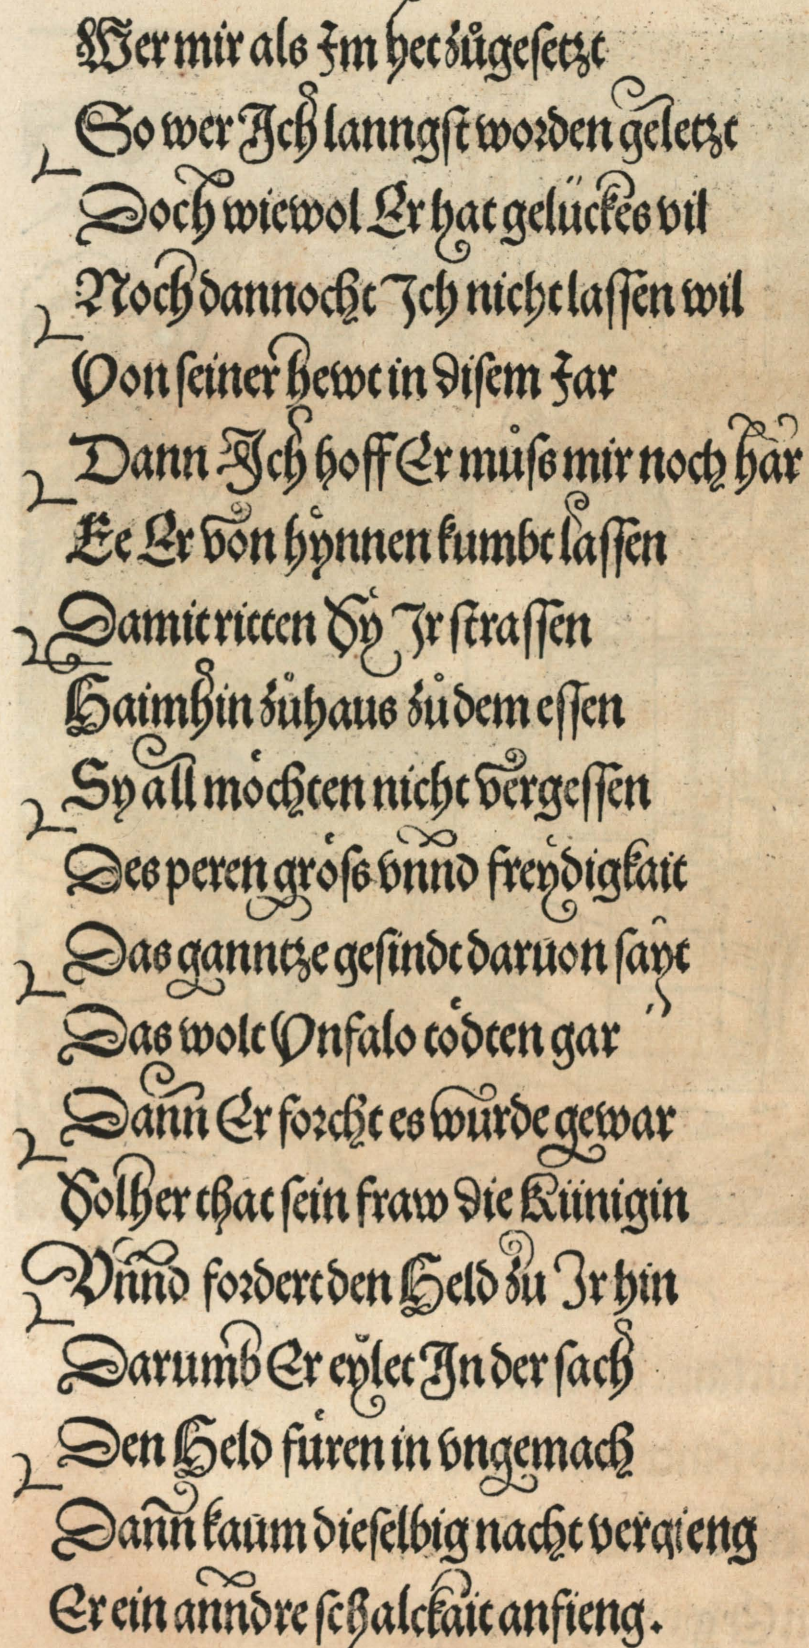 Wer mir als Im het zůgesetzt
So wer Ich lanngst worden geletzt
Doch wiewol Er hat gelückes vil
Noch dannocht Ich nicht lassen wil
Von seiner hewt in disem Jar
Dann Ich hoff Er můss mir noch här
Ee Er von hynnen kumbt lassen
Damit ritten Sy Ir strassen
Haimhin zůhaus zů dem essen
Sy all möchten nicht vergessen
Des peren gröss vnnd freydigkait
Das ganntze gesindt daruon sayt
Das wolt Vnfalo tödten gar
Dann Er forcht es wurde gewar
Solher that sein fraw die Künigin
Vnnd fordert den Held zu Ir hin
Darumb Er eylet In der sach
Den Held füren in vngemach
Dann kaum dieselbig nacht vergieng
Er ein anndre schalckait anfieng.